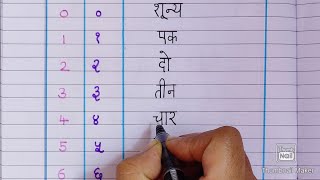 0 ० शून्य
1 १ पक
2 २ दो
3 ३ तीन
4 ४ चार
5 ५
6 ६